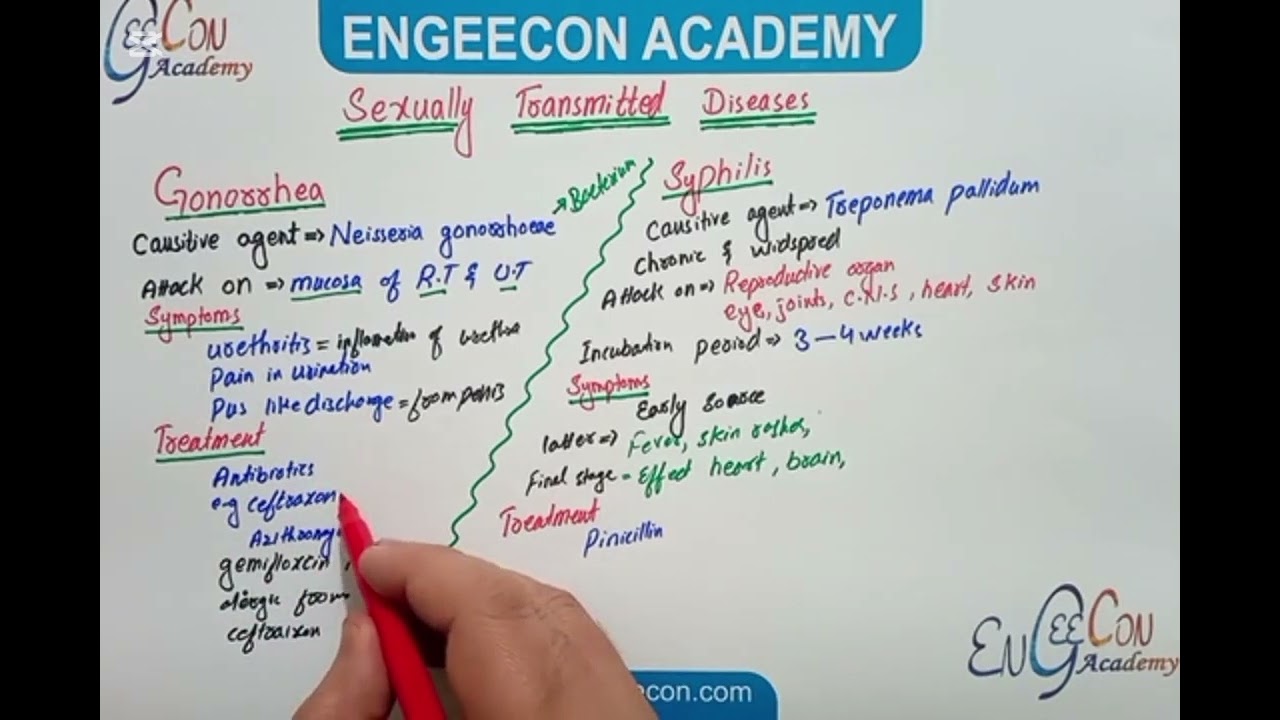 GEECON
Academy
ENGEECON ACADEMY
Sexually Transmitted Diseases
Gonorrhea
Causitive agent => Neisseria gonorrhoeae
→ Bacterium
Attack on => mucosa of R.T & U.T
Symptoms
urethritis = inflamation of urethra
Pain in urination
Pus like discharge = from penis
Treatment
Antibiotics
e-g ceftraxon
Azithromy
gemifloxcin
alergic from
ceftraixon
Syphilis
Causitive agent => Treponema pallidum
Chronic & widspred
Attack on => Reproductive organ
eye, joints, C.N.S, heart, skin
Incubation period => 3 - 4 weeks
Symptoms
Early
latter => Fever, skin rashes,
Final stage = Effect heart, brain,
Treatment
Pinicillin
con.com
ENGEECON
Academy